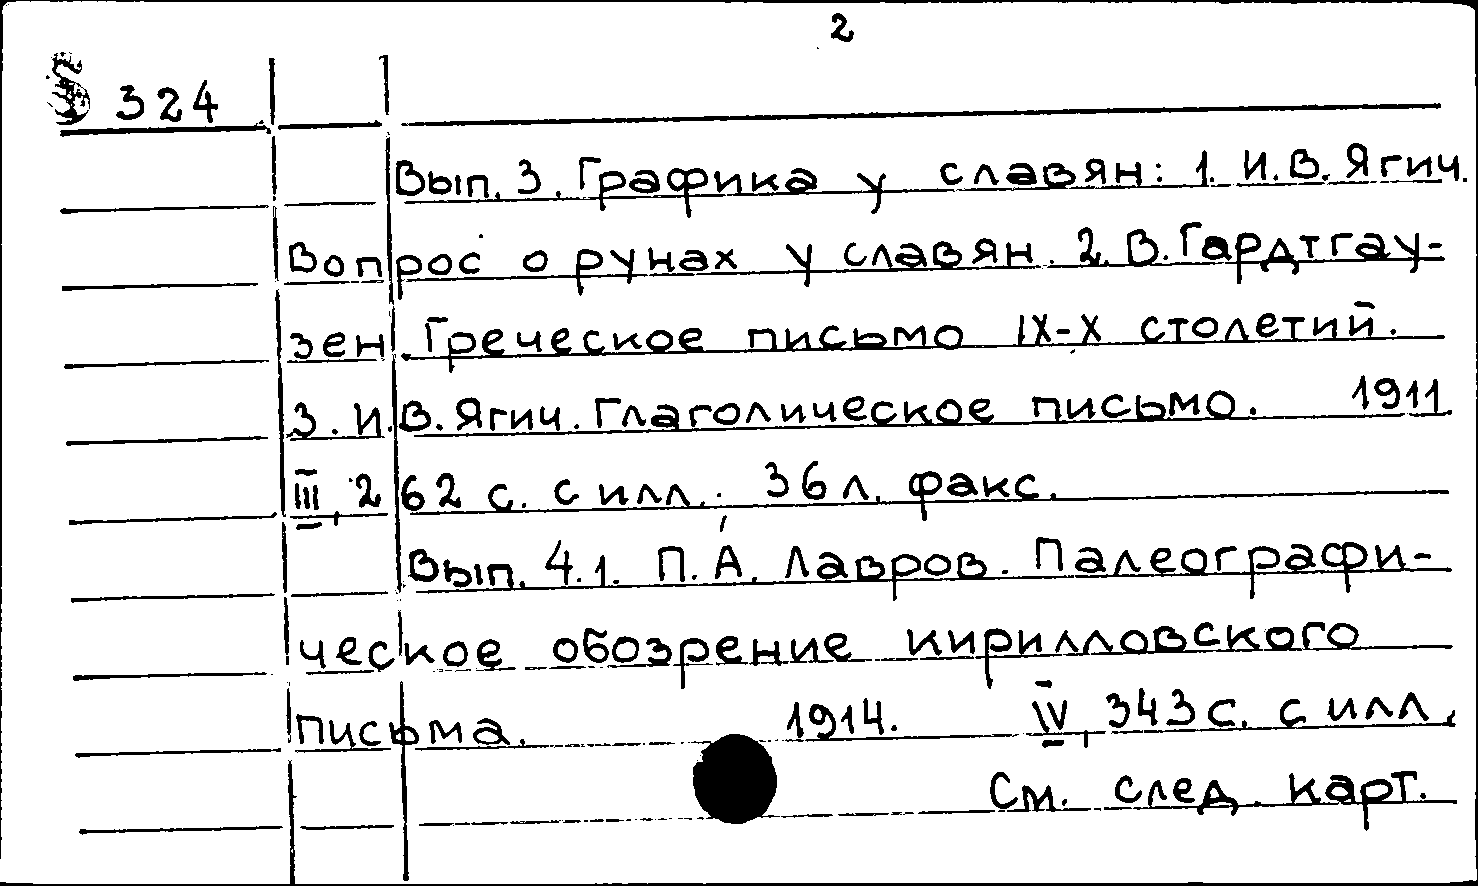 2
§ 324
Вып. 3. Графика у славян: 1. И.В. Ягич.
Вопрос о рунах у славян. 2. В. Гардтгау-
зен. Греческое письмо IX-X столетий.
3. И.В. Ягич. Глаголическое письмо. 1911.
III, 262 с. с илл.; 36 л. факс.
Вып. 4.1. П.А. Лавров. Палеографи-
ческое обозрение кирилловского
письма. 1914. IV, 343 с. с илл.
См. след. карт.